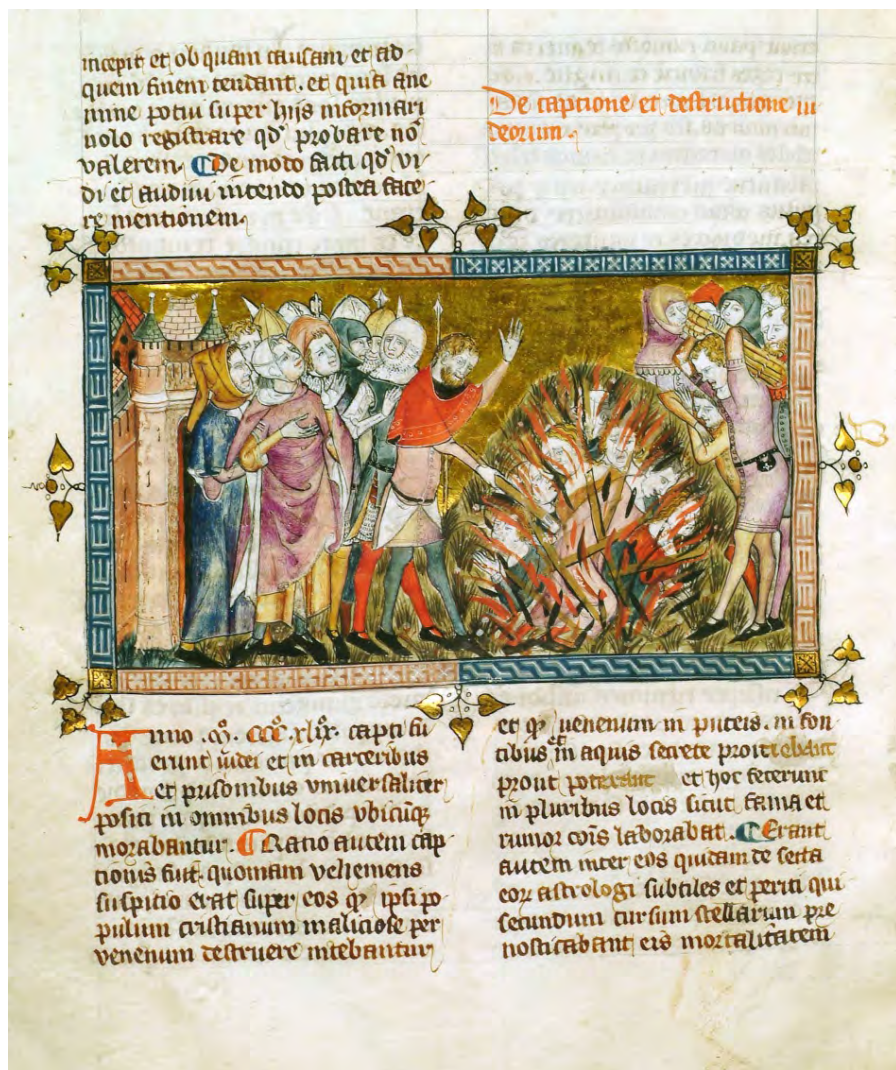 incepit et ob quam causam et ad
quem finem tendant. et quia ane
mine potui super hijs informari
nolo registrare qd̕ probare nō
valerem. De modo facti qd̕ vi
di et audiui intendo postea face
re mentionem.
De captione et destructione iu
deorum.
Anno .mͦ. cccͦ. xlixͦ. capti fu
erunt iudei et in carceribus
et prisonibus vniuersaliter
positi in omnibus locis vbicūqꝫ
morabantur. Ratio autem cap
tionis fuit. quoniam vehemens
suspitio erat super eos qꝫ ipsi po
pulum cristianum maliciose per
venenum destruere nitebantur
et qꝫ uenenum in puteis. in fon
tibus et in aquis secrete proitiebant
prout poterant et hoc fecerunt
in pluribus locis sicut fama et
rumor cōis laborabat. Erant
autem inter eos quidam de secta
eoꝝ astrologi subtiles et periti qui
secundum cursum stellarum pre
nosticabant eis mortalitatem